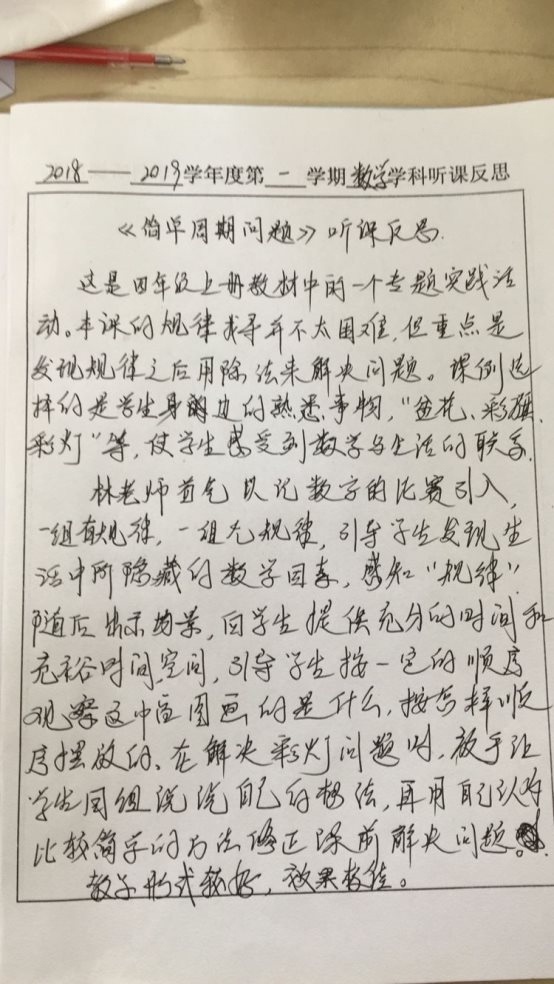 2018——2019学年度第一学期数学学科听课反思
《简单周期问题》听课反思.
这是四年级上册教材中的一个专题实践活
动。本课的规律找寻并不太困难,但重点是
发现规律之后用除法来解决问题。课例选
择的是学生身边的熟悉事物,“盆花、彩旗、
彩灯”等,使学生感受到数学与生活的联系.
林老师首先以记数字的比赛引入,
一组有规律,一组无规律,引导学生发现生
活中所隐藏的数学因素,感知“规律”.
随后出示场景,向学生提供充分的时间和
充裕时间空间,引导学生按一定的顺序
观察这中画的是什么,按怎样顺
序摆放的、在解决彩灯问题时,放手让
学生同组说说自己的想法,再用自己认为
比较简单的方法解决问题。
教学形式较好,效果较佳。